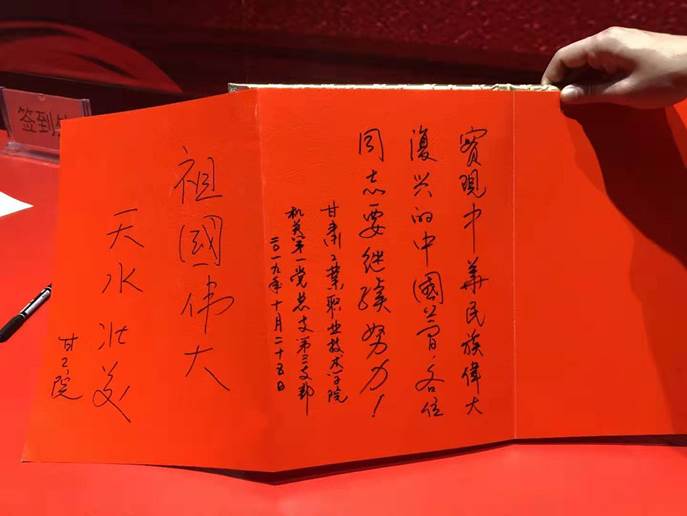 實現中華民族偉大
復兴的中國夢,各位
同志要继續努力!
甘肃工業职业技术学院
机关第一党总支第三支部
二〇一九年十月二十五日
祖國伟大
天水壮美
甘工院
签到